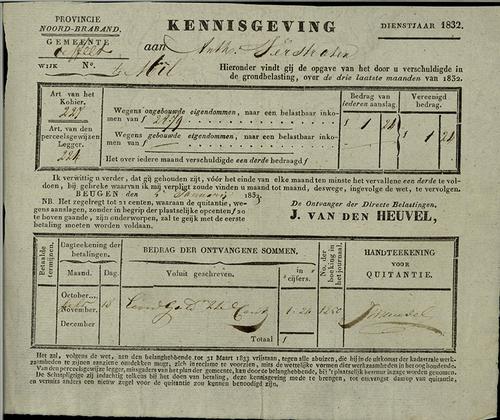 PROVINCIE
NOORD-BRABAND.
GEMEENTE
WIJK No.
KENNISGEVING
aan Anth.
DIENSTJAAR 1832.
Hieronder vindt gij de opgave van het door u verschuldigde in
de grondbelasting, over de drie laatste maanden van 1832.
Art van het
Kohier.
227
Art. van den
perceelsgewijzen
Legger.
224
Wegens ongebouwde eigendommen, naar een belastbaar inko-
men van f
Wegens gebouwde eigendommen, naar een belastbaar inko-
men van f
Het over iedere maand verschuldigde een derde bedraagd f
Bedrag van
iederen aanslag.
f 1 24
f
Vereenigd
bedrag.
f 1 24
Ik verwittig u verder, dat gij gehouden zijt, vóór het einde van elke maand ten minste het vervallene een derde te vol-
doen, bij gebreke waarvan ik mij verpligt zoude vinden u maand tot maand, deswege, ingevolge de wet, te vervolgen.
BEUGEN den 1833.
NB. Het zegelregt tot 21 centen, waaraan de quitantie, we-
gens aanslagen, zonder in begrip der plaatselijke opcenten f 20
te boven gaande, zijn onderworpen, zal te gelijk met de eerste
betaling moeten worden voldaan.
De Ontvanger der Directe Belastingen.
J. VAN DEN HEUVEL,
Betaalde
termijnen.
Dagteekening der
betalingen.
Maand. Dag.
BEDRAG DER ONTVANGENE SOMMEN.
Voluit geschreven.
in
cijfers.
No. der
boeking in
het journaal.
HANDTEEKENING
VOOR
QUITANTIE.
October
November. 18 1-24
December
Totaal f
Het zal, volgens de wet, aan den belanghebbende tot 31 Maart 1833 vrijstaan, tegen alle abuizen, die hij in de uitkomst der kadastrale werk-
zaamheden te zijnen aanziene ontdekken mogt, zich in reclame te voorzien, mits de wettelijke vormen dier werkzaamheden in het oog houdende.
Van den perceelsgewijze legger, mitsgaders van het plan der gemeente, kan door de belanghebbende, bij 't plaatselijk bestuur inzage worden genomen.
De Schatpligtige zij indachtig telkens bij het doen van betaling, deze kennisgeving mede te brengen, tot ontvangst daarop van quitantie,
en vermits anders een nieuw zegel voor de quitantie zou kunnen benoodigd zijn.